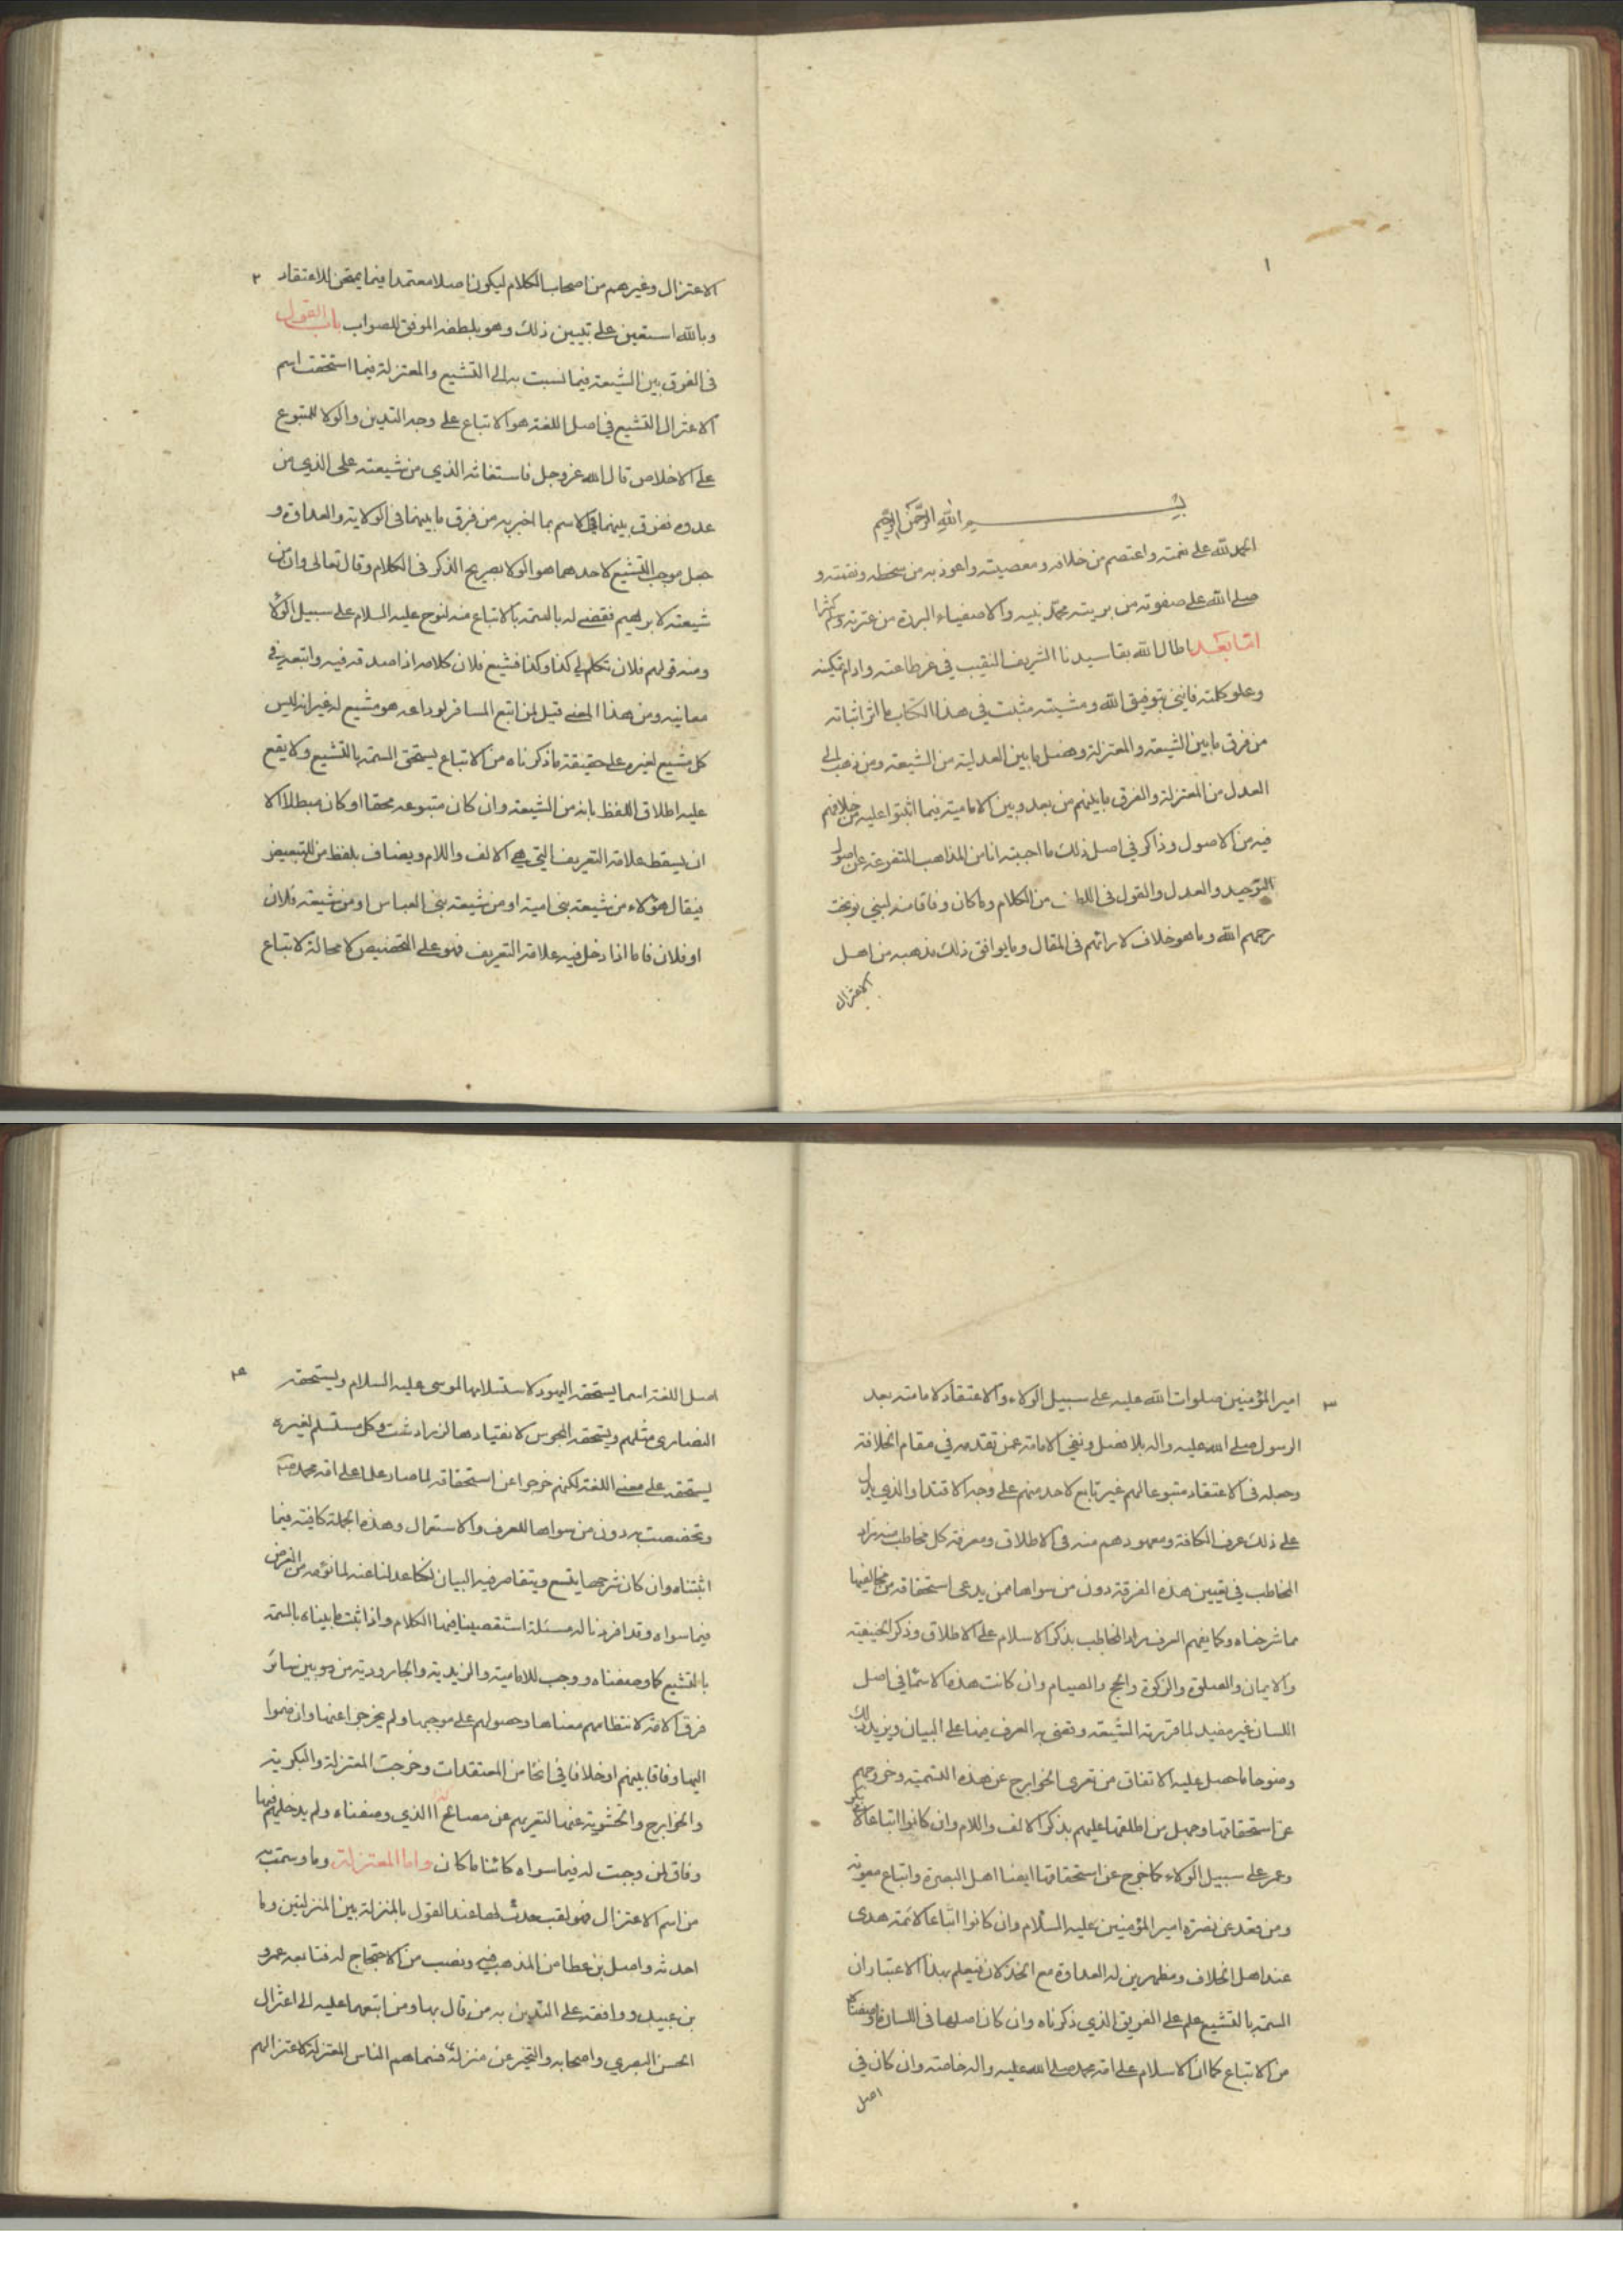 ١
بسم الله الرحمن الرحيم
الحمد لله على نعمته واعتصم من خلافه ومعصيته واعوذ به من سخطه ونقمته و
صلى الله على صفوته من بريته محمد نبيه والاصفياء البررة من عترته وسلم كثيرا
اما بعد اطال الله بقا سيدنا الشريف النقيب في عز طاعته وادام تمكينه
وعلو كلمته فانني بتوفيق الله ومشيته مثبت في هذا الكتاب ما اثر اثباته
من فرق ما بين الشيعة والمعتزلة وفصل ما بين العدلية من الشيعة ومن ذهب الى
العدل من المعتزلة والفرق ما بينهم من بعد وبين الامامية فيما اتفقوا عليه من خلافهم
فيه من الاصول وذاكر في اصل ذلك ما اجتبيته انا من المذاهب المتفرعة عن اصول
التوحيد والعدل والقول في اللطيف من الكلام وما كان وفاقا منه لبني نوبخت
رحمهم الله وما هو خلاف لارائهم في المقال وما يوافق ذلك مذهبه من اهل
الاعتزال
٢
الاعتزال وغيرهم من اصحاب الكلام ليكون اصلا معتمدا فيما يمتحن للاعتقاد
وبالله استعين على تبيين ذلك وهو بلطفه الموفق للصواب باب القول
في الفرق بين الشيعة فيما نسبت به الى التشيع والمعتزلة فيما استحقت اسم
الاعتزال التشيع في اصل اللغة هو الاتباع على وجه التدين والولا للمتبوع
على الاخلاص قال الله عز وجل فاستغاثه الذي من شيعته على الذي من
عدوه ففرق بينهما في الاسم بما اخبر به من فرق ما بينهما في الولاية والعداوة و
جعل موجب التشيع لاحدهما هو الولا بصريح الذكر في الكلام وقال تعالى وان من
شيعته لابراهيم فقضى له بالسمة بالاتباع منه لنوح عليه السلام على سبيل الولا
ومنه قولهم فلان تكلم في كذا وكذا فشيع فلان كلامه اذا صدقه فيه واتبعه في
معانيه ومن هذا المعنى قيل لمن اتبع المسافر لوداعه هو مشيع له غير انه ليس
كل مشيع لغيره على حقيقة ما ذكرناه من الاتباع يستحق السمة بالتشيع ولا يقع
عليه اطلاق اللفظ بانه من الشيعة وان كان متبوعه محقا او كان مبطلا الا
ان يسقط علامة التعريف التي هي الالف واللام ويضاف بلفظ من للتبعيض
فيقال هؤلاء من شيعة بني امية او من شيعة بني العباس او من شيعة فلان
او فلان فاما اذا دخل فيه علامة التعريف فهو على التخصيص لا محالة لاتباع
٣
امير المؤمنين صلوات الله عليه على سبيل الولاء والاعتقاد لامامته بعد
الرسول صلى الله عليه واله بلا فصل ونفي الامامة عمن تقدمه في مقام الخلافة
وجعله في الاعتقاد متبوعا لهم غير تابع لاحد منهم على وجه الاقتدا والذي يدل
على ذلك عرف الكافة ومعهودهم منه في الاطلاق ومعرفة كل مخاطب منه مراد
المخاطب في تعيين هذه الفرقة دون من سواها ممن يدعى استحقاقه من مخالفيها
مما شرحناه وكما يفهم العرف مراد المخاطب بذكر الاسلام على الاطلاق وذكر الحنيفية
والايمان والصلوة والزكوة والحج والصيام وان كانت هذه الاسما في اصل
اللسان غير مفيد لما قررته الشيعة وقضى به العرف منها على البيان ويزيد ذلك
وضوحا ما حصل عليه الاتفاق من تعرى الخوارج عن هذه التسمية وخروجهم
عن استحقاقها وجهل من اطلقها عليهم بذكر الالف واللام وان كانوا اتباعا لابي بكر
وعمر على سبيل الولاء كما خرج عن استحقاقها ايضا اهل البصرة واتباع معوية
ومن قعد عن نصرة امير المؤمنين عليه السلام وان كانوا اتباعا لائمة هدى
عند اهل الخلاف ومظهرين له العداوة مع الخذلان فيعلم بهذا الاعتبار ان
السمة بالتشيع علم على الفريق الذي ذكرناه وان كان اصلها في اللسان ما وصفناه
من الاتباع كما ان الاسلام علم على امة محمد صلى الله عليه واله خاصة وان كان في
اصل
٤
اصل اللغة اسما يستحقه اليهود لاستسلامها لموسى عليه السلام ويستحقه
النصارى مثلهم ويستحقه المجوس لانقيادها لزرادشت وكل مستسلم لغيره
يستحقه على معنى اللغة لكنهم خرجوا عن استحقاقه لما صار علما على امة محمد ص
وتخصصت به دون من سواها للعرف والاستعمال وهذه الجملة كافية فيما
اثبتناه وان كان شرحها يتسع ويتقاصر فيه البيان لكنا عدلنا عنه لما نؤمه من الغرض
فيما سواه وقد افردنا له مسئلة استقصينا فيها الكلام واذا ثبت ما بيناه بالسمة
بالتشيع كما وصفناه ووجب للامامية والزيدية والجارودية من هو بين سائر
فرق الامة لانتظامهم معناها وحصولهم على موجبها ولم يخرجوا عنها وان ضموا
اليها وفاقا بينهم او خلافا في انحا من المعتقدات وخرجت المعتزلة والبكرية
والخوارج والحشوية عنها لتعريهم عن معناها الذي وصفناه ولم يدخلهم فيها
وفاق لمن وجبت له فيما سواه كائنا ما كان واما المعتزلة وما وسمت به
من اسم الاعتزال فهو لقب حدث لها عند القول بالمنزلة بين المنزلتين وما
احدثه واصل بن عطا من المذهب في ونصب من الاحتجاج له فتابعه عمرو
بن عبيد ووافقه على التدين به من قال بها ومن اتبعهما عليه الى اعتزال
الحسن البصري واصحابه والتحيز عن منزلة فسماهم الناس المعتزلة لاعتزالهم